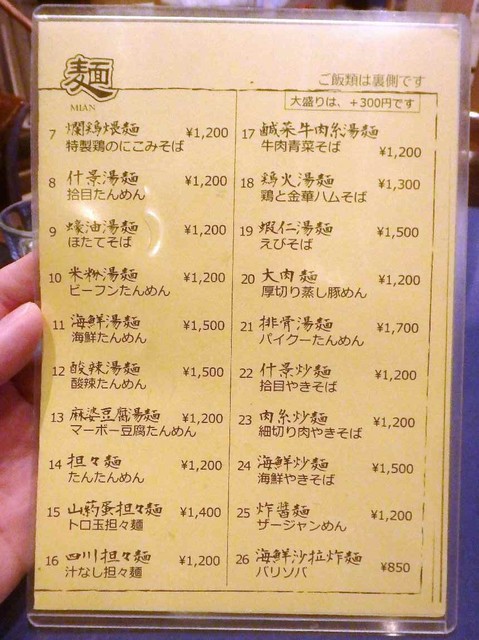 麺
MIAN
ご飯類は裏側です
大盛りは、+300円です
7 爛鶏煨麺 ¥1,200
特製鶏のにこみそば
8 什景湯麺 ¥1,200
拾目たんめん
9 蠔油湯麺 ¥1,200
ほたてそば
10 米粉湯麺 ¥1,200
ビーフンたんめん
11 海鮮湯麺 ¥1,500
海鮮たんめん
12 酸辣湯麺 ¥1,500
酸辣たんめん
13 麻婆豆腐湯麺 ¥1,200
マーボー豆腐たんめん
14 担々麺 ¥1,200
たんたんめん
15 山药蛋担々麺 ¥1,400
トロ玉担々麺
16 四川担々麺 ¥1,200
汁なし担々麺
17 鹹菜牛肉糸湯麺
牛肉青菜そば
¥1,200
18 鶏火湯麺 ¥1,300
鶏と金華ハムそば
19 蝦仁湯麺 ¥1,500
えびそば
20 大肉麺 ¥1,200
厚切り蒸し豚めん
21 排骨湯麺 ¥1,700
パイクーたんめん
22 什景炒麺 ¥1,200
拾目やきそば
23 肉糸炒麺 ¥1,200
細切り肉やきそば
24 海鮮炒麺 ¥1,500
海鮮やきそば
25 炸醤麺 ¥1,200
ザージャンめん
26 海鮮沙拉炸麺 ¥850
バリソバ